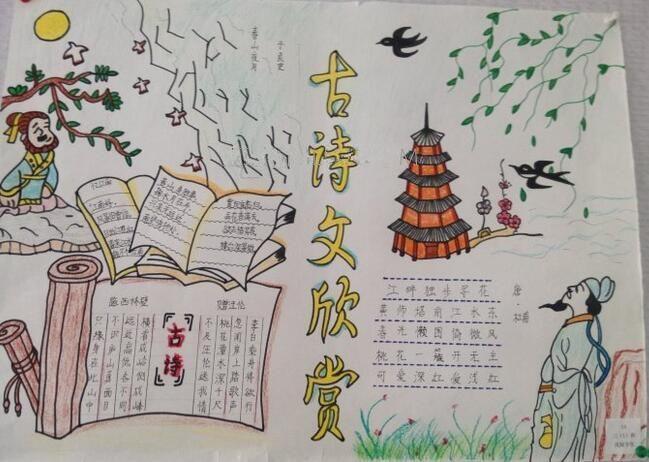 古诗文欣赏
春山夜月
于良史
忆江南
江南好
春山多胜事
弄花香满衣
江畔独步寻花
唐·杜甫
黄师塔前江水东
春光懒困倚微风
桃花一簇开无主
可爱深红爱浅红
赠汪伦
李白乘舟将欲行
忽闻岸上踏歌声
桃花潭水深千尺
不及汪伦送我情
古诗
题西林壁
横看成岭侧成峰
远近高低各不同
不识庐山真面目
只缘身在此山中